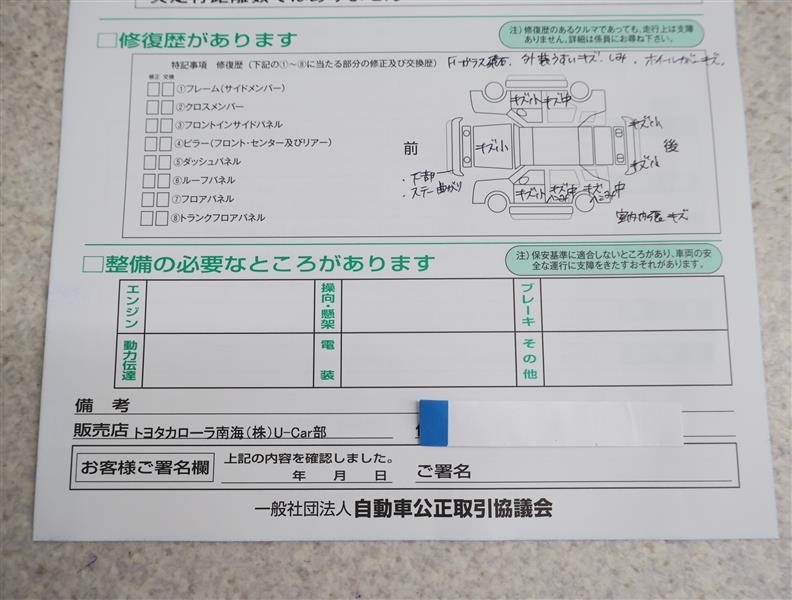 □修復歴があります
注）修復歴のあるクルマであっても、走行上は支障
ありません。詳細は係員にお尋ね下さい。
特記事項 修復歴（下記の①〜⑧に当たる部分の修正及び交換歴）
外装うすいキズ、しみ、
修正 交換
①フレーム（サイドメンバー）
②クロスメンバー
③フロントインサイドパネル
④ピラー（フロント・センター及びリアー）
⑤ダッシュパネル
⑥ルーフパネル
⑦フロアパネル
⑧トランクフロアパネル
キズ小 キズ中
前
キズ小
キズ小
後
キズ小
・下部
・ステー曲がり
キズ小 キズ中 キズ中
室内内張キズ
□整備の必要なところがあります
注）保安基準に適合しないところがあり、車両の安
全な運行に支障をきたすおそれがあります。
エンジン
操向・懸架
ブレーキ
動力伝達
電装
その他
備考
販売店 トヨタカローラ南海（株）U-Car部
お客様ご署名欄
上記の内容を確認しました。
年 月 日
ご署名
一般社団法人 自動車公正取引協議会